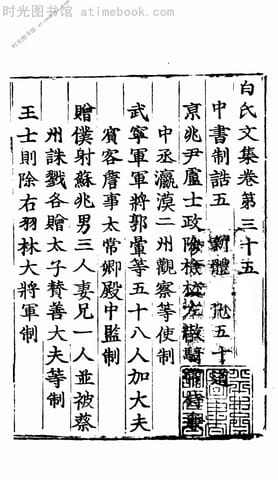 时光图书馆 atimebook.com
白氏文集卷第三十五
中書制誥五 新體 凡五十道
京兆尹盧士政除檢挍左散騎常侍兼
中丞瀛漠二州觀察等使制
武寧軍軍將郭暈等五十八人加大夫
賓客詹事太常卿殿中監制
贈僕射蘇兆男三人妻兄一人並被蔡
州誅戮各贈太子賛善大夫等制
王士則除右羽林大將軍制